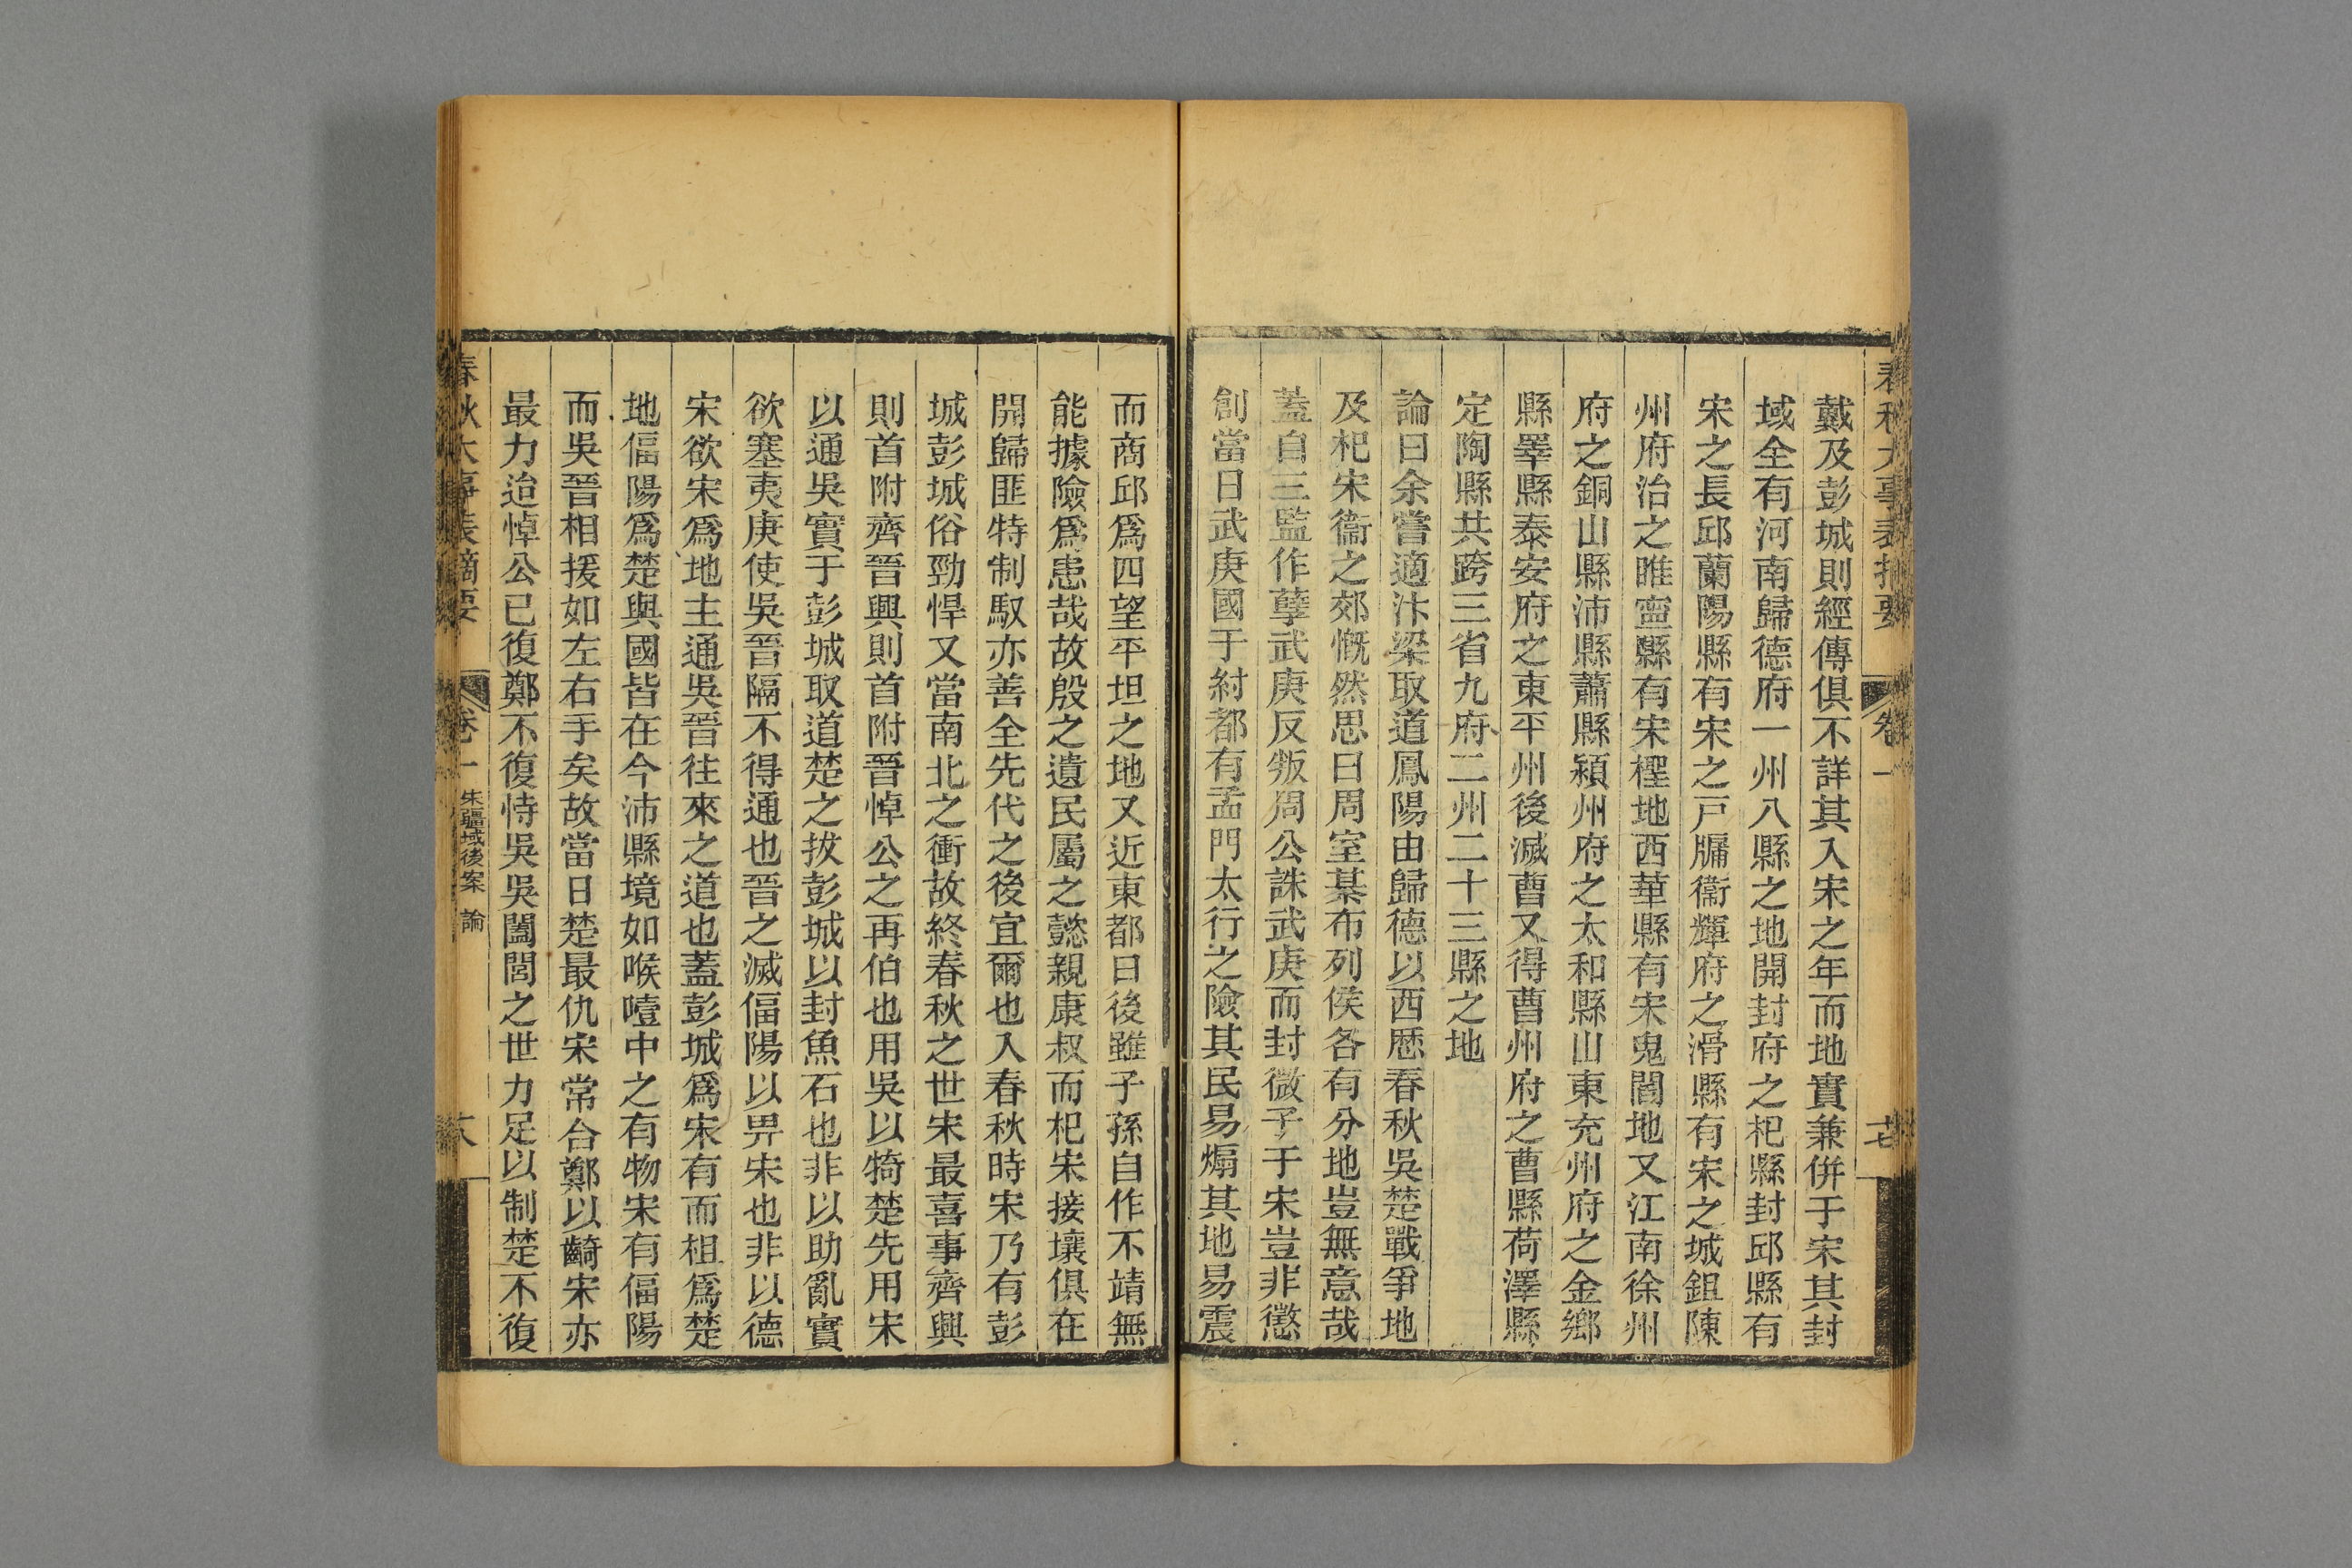 春秋大事表摘要
卷一
戴及彭城則經傳俱不詳其入宋之年而地實兼併于宋其封
域全有河南歸德府一州八縣之地開封府之杞縣封邱縣有
宋之長邱蘭陽縣有宋之戸牖衞輝府之滑縣有宋之城鉏陳
州府治之睢寧縣有宋檉地西華縣有宋鬼閻地又江南徐州
府之銅山縣沛縣蕭縣潁州府之太和縣山東兖州府之金鄉
縣嶧縣泰安府之東平州後滅曹又得曹州府之曹縣荷澤縣
定陶縣共跨三省九府二州二十三縣之地
論曰余嘗適汴梁取道鳳陽由歸德以西歴春秋吳楚戰爭地
及杞宋衞之郊慨然思曰周室棊布列侯各有分地豈無意哉
蓋自三監作孽武庚反叛周公誅武庚而封微子于宋豈非懲
創當日武庚國于紂都有孟門太行之險其民易煽其地易震
而商邱爲四望平坦之地又近東都日後雖子孫自作不靖無
能據險爲患哉故殷之遺民屬之懿親康叔而杞宋接壤俱在
開歸匪特制馭亦善全先代之後宜爾也入春秋時宋乃有彭
城彭城俗勁悍又當南北之衝故終春秋之世宋最喜事齊興
則首附齊晉興則首附晉悼公之再伯也用吳以犄楚先用宋
以通吳實于彭城取道楚之拔彭城以封魚石也非以助亂實
欲塞夷庚使吳晉隔不得通也晉之滅偪陽以畀宋也非以德
宋欲宋爲地主通吳晉往來之道也蓋彭城爲宋有而柤爲楚
地偪陽爲楚與國皆在今沛縣境如喉噎中之有物宋有偪陽
而吳晉相援如左右手矣故當日楚最仇宋常合鄭以齮宋亦
最力迨悼公已復鄭不復恃吳吳闔閭之世力足以制楚不復
春秋大事表摘要
卷一
宋疆域後案 論